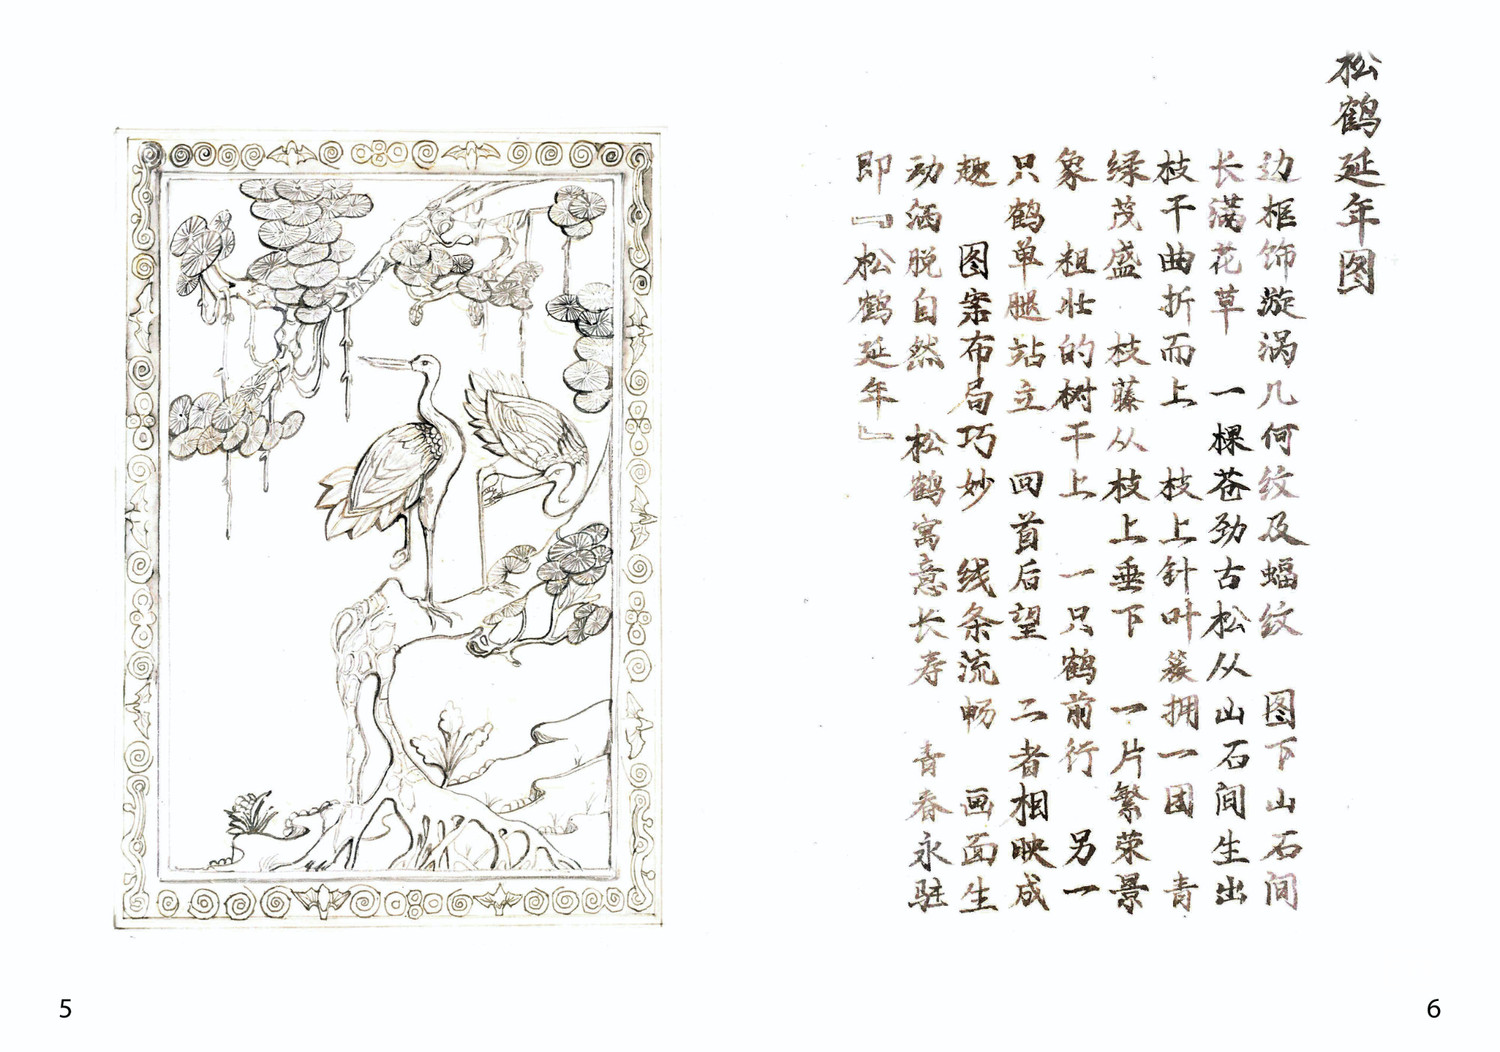 5
松鹤延年图
边框饰漩涡几何纹及蝠纹 图下山石间
长满花草 一棵苍劲古松从山石间生出
枝干曲折而上 枝上针叶簇拥一团 青
绿茂盛 枝藤从枝上垂下 一片繁荣景
象 粗壮的树干上 一只鹤前行 另一
只鹤单腿站立 回首后望 二者相映成
趣 图案布局巧妙 线条流畅 画面生
动洒脱自然 松鹤寓意长寿 青春永驻
即『松鹤延年』
6